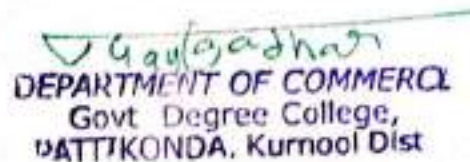 V Gangadhar
DEPARTMENT OF COMMERCE
Govt Degree College,
PATTIKONDA, Kurnool Dist